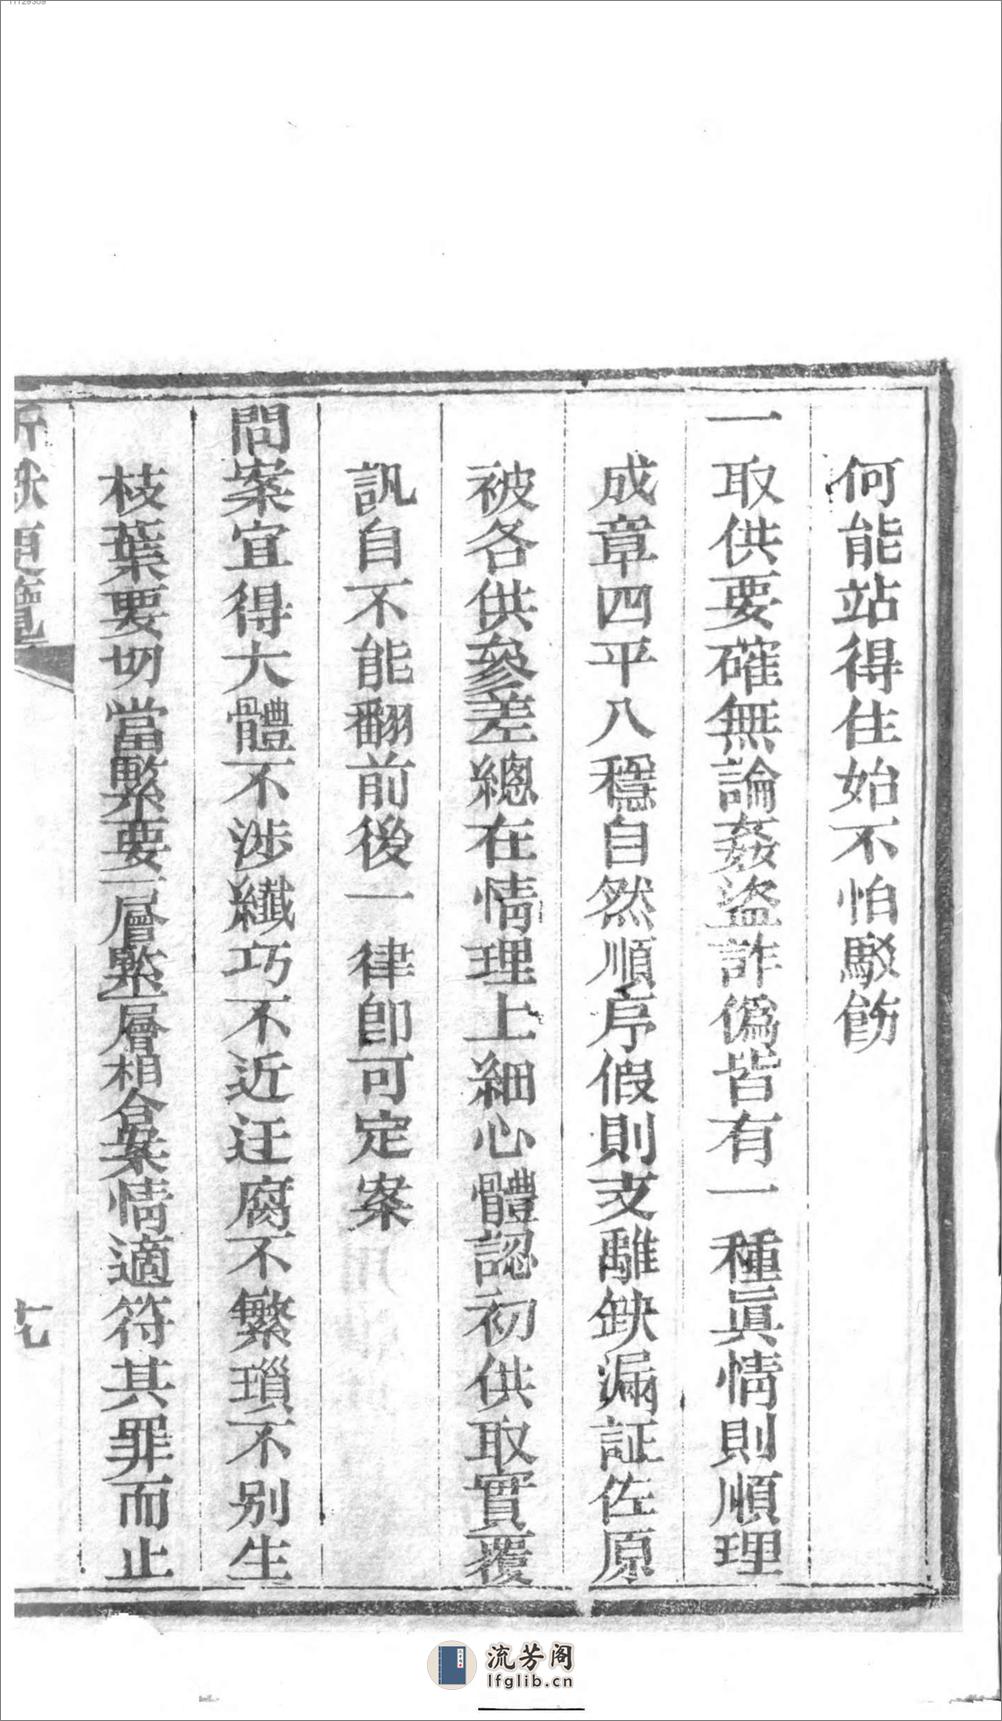 何能站得住始不怕駁飭
一取供要確無論姦盜詐偽皆有一種眞情則順理
成章四平八穩自然順序假則支離缺漏証佐原
被各供參差總在情理上細心體認初供取實覆
訊自不能翻前後一律卽可定案
問案宜得大體不涉纖巧不近迂腐不繁瑣不别生
枝葉要切當緊要一層緊一層相合案情適符其罪而止
流芳阁
lfglib.cn